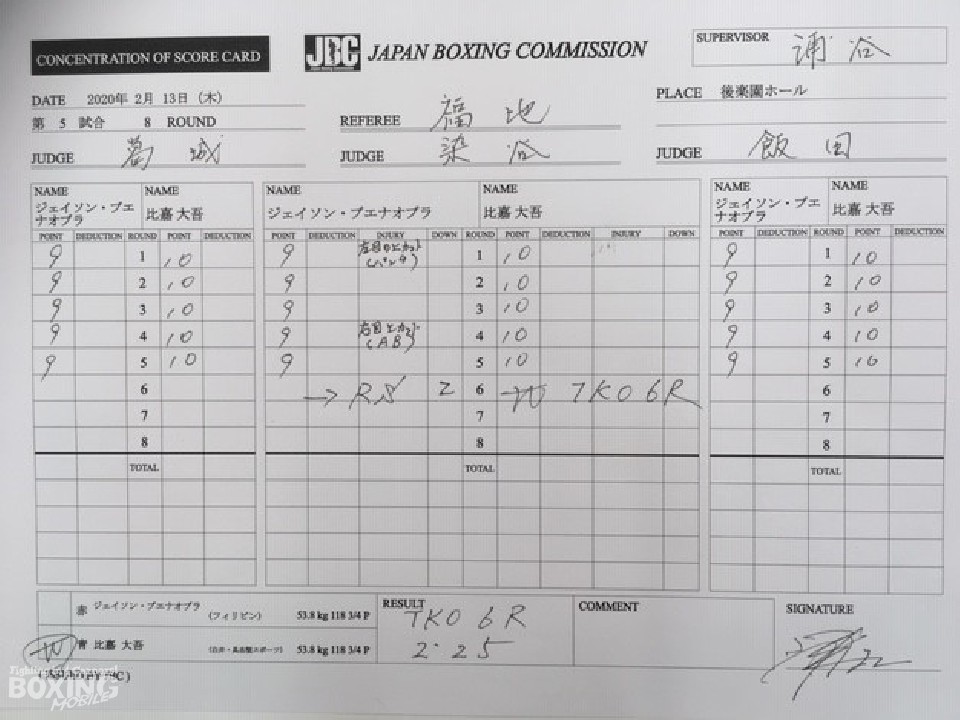 CONCENTRATION OF SCORE CARD
JBC JAPAN BOXING COMMISSION
SUPERVISOR 浦谷
DATE 2020年 2月 13日 (木)
PLACE 後楽園ホール
第 5 試合 8 ROUND
REFEREE 福地
JUDGE 葛城
JUDGE 染谷
JUDGE 飯田
NAME NAME NAME NAME NAME NAME
ジェイソン・ブエナオブラ 比嘉 大吾 ジェイソン・ブエナオブラ 比嘉 大吾 ジェイソン・ブエナオブラ 比嘉 大吾
POINT DEDUCTION ROUND POINT DEDUCTION POINT DEDUCTION INJURY DOWN ROUND POINT DEDUCTION INJURY DOWN POINT DEDUCTION ROUND POINT DEDUCTION
9 1 10 9 (パンチ) 1 10 9 1 10
9 2 10 9 2 10 9 2 10
9 3 10 9 3 10 9 3 10
9 4 10 9 (AB) 4 10 9 4 10
9 5 10 9 5 10 9 5 10
6 → RS 2 6 TKO 6R 6
7 7 7
8 8 8
TOTAL TOTAL TOTAL
赤 ジェイソン・ブエナオブラ (フィリピン) 53.8 kg 118 3/4 P
RESULT TKO 6R
COMMENT
SIGNATURE
青 比嘉 大吾 53.8 kg 118 3/4 P
2.25
Fighting the Carnaval
BOXING
MOBILE